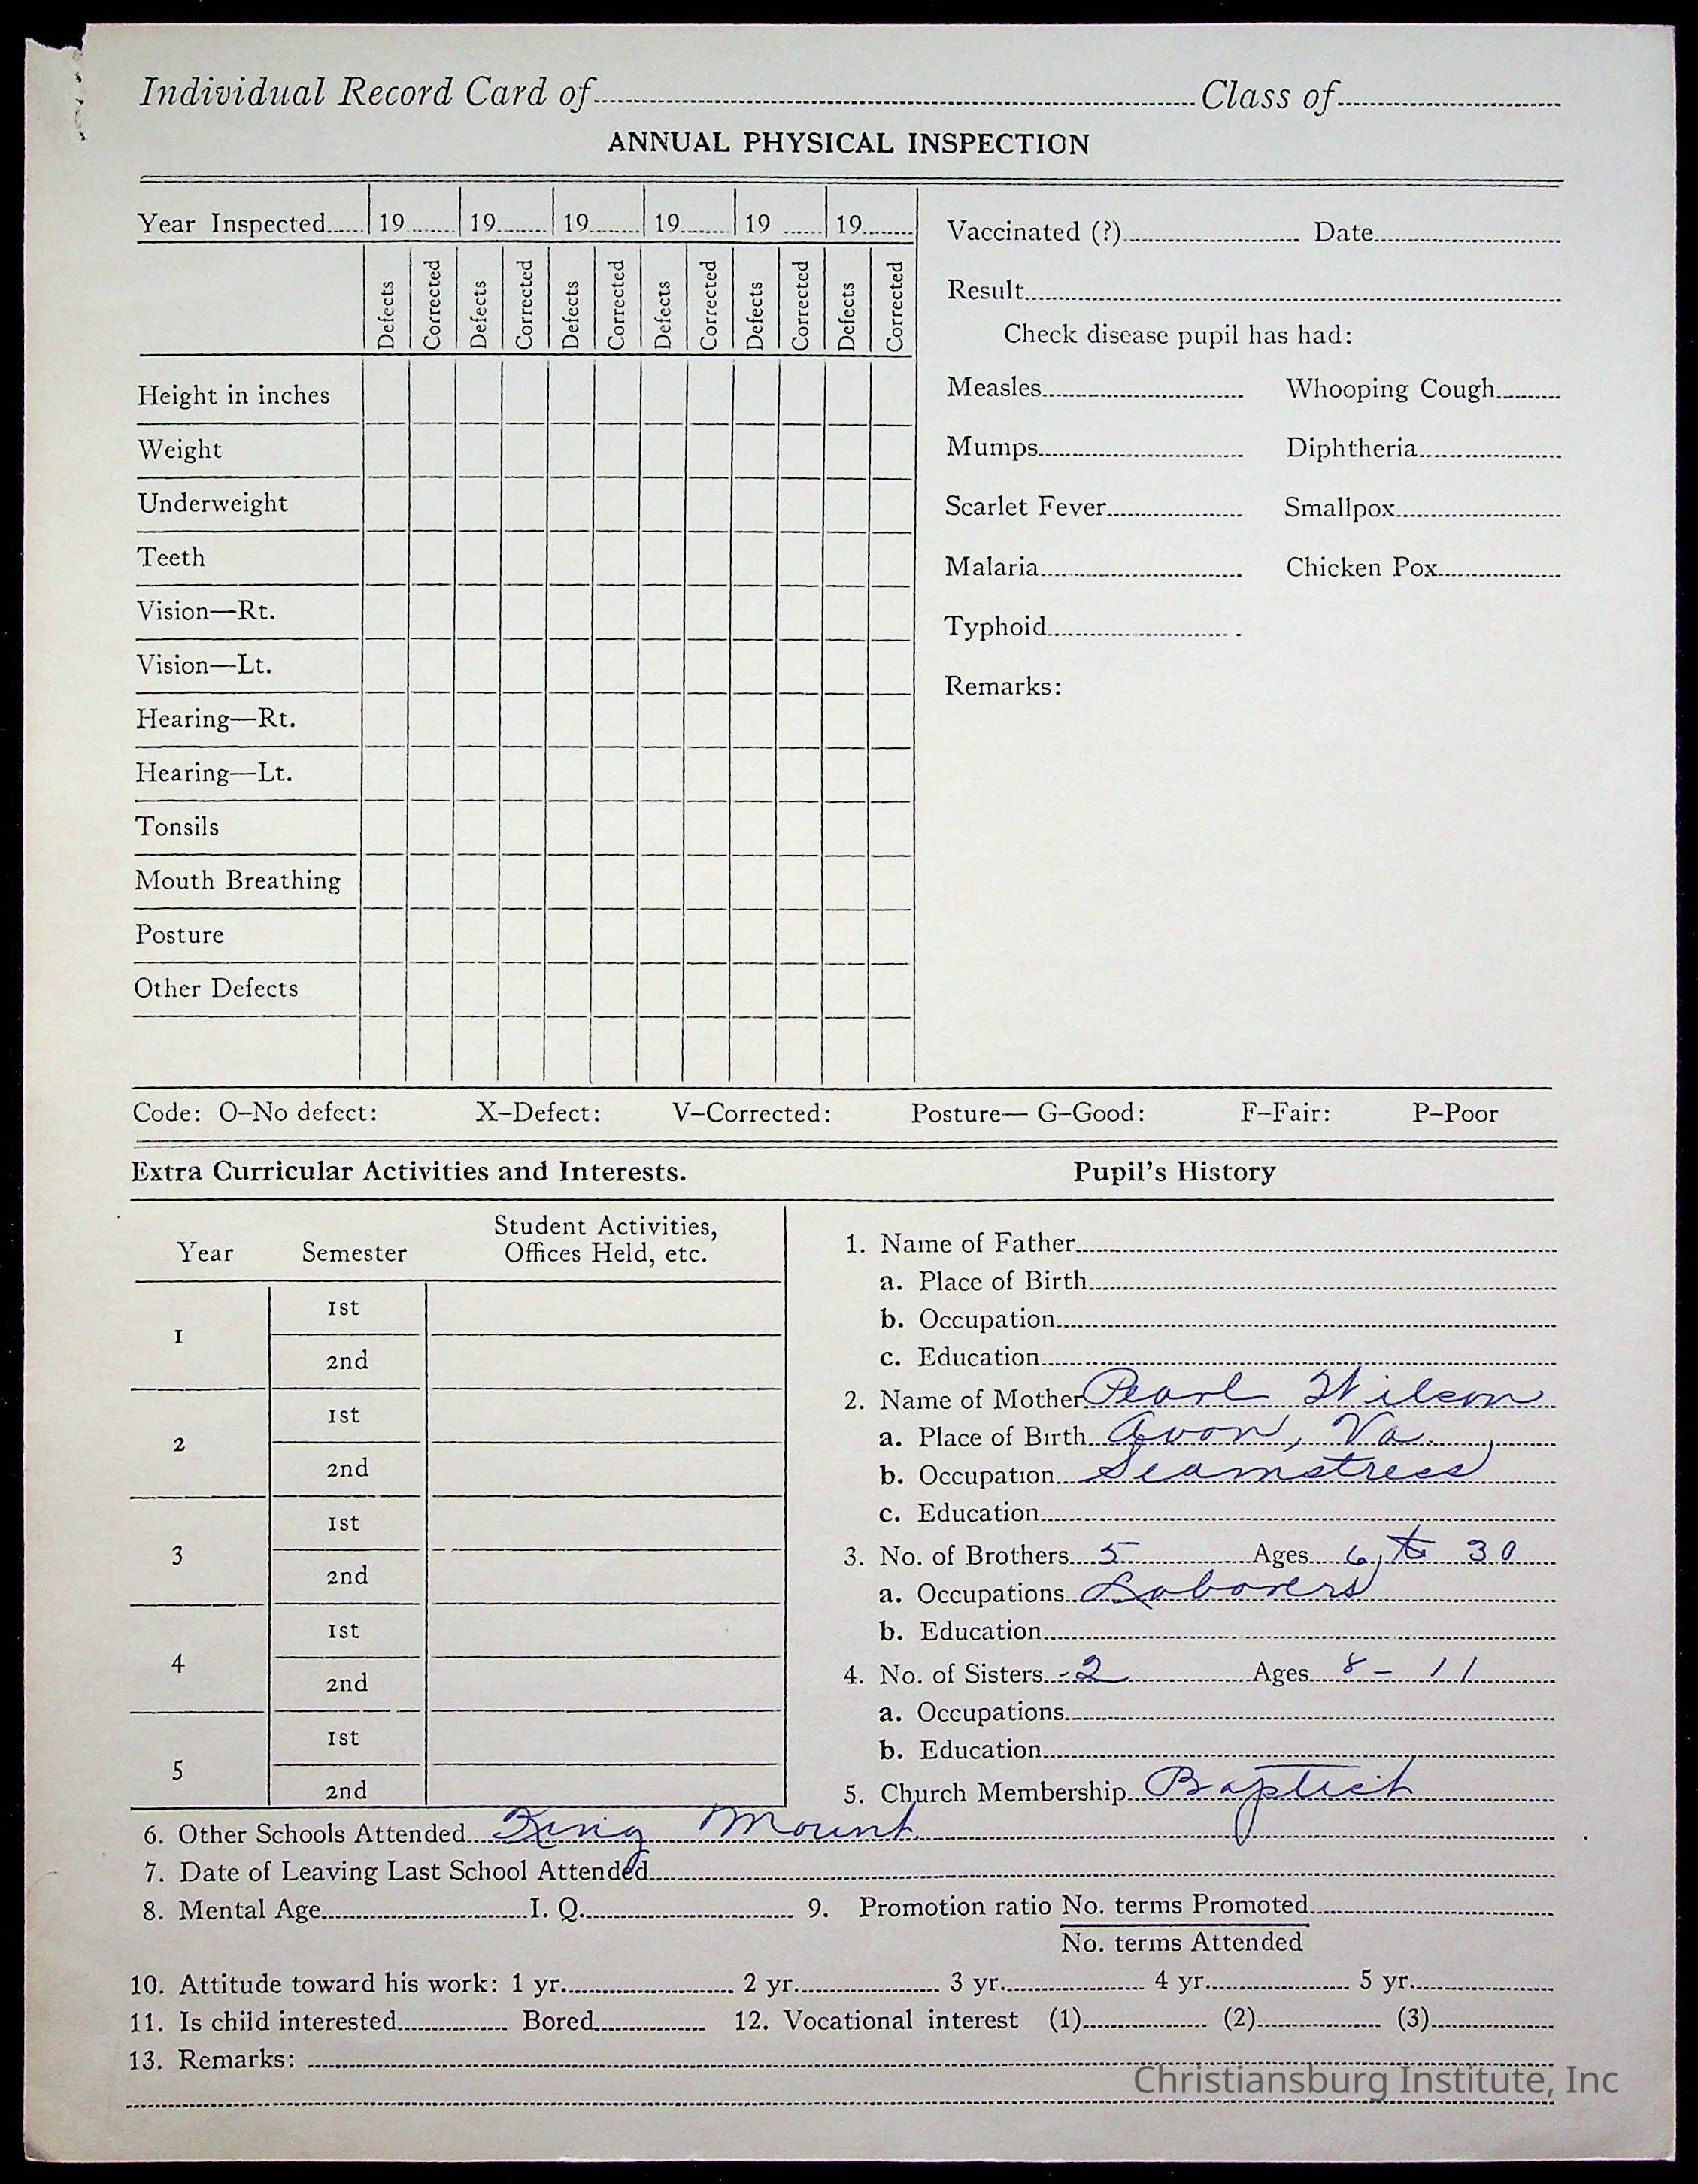 Individual Record Card of Class of
ANNUAL PHYSICAL INSPECTION
Year Inspected 19 19 19 19 19 19
Defects Corrected Defects Corrected Defects Corrected Defects Corrected Defects Corrected Defects Corrected
Height in inches
Weight
Underweight
Teeth
Vision—Rt.
Vision—Lt.
Hearing—Rt.
Hearing—Lt.
Tonsils
Mouth Breathing
Posture
Other Defects
Vaccinated (?) Date
Result
Check disease pupil has had:
Measles Whooping Cough
Mumps Diphtheria
Scarlet Fever Smallpox
Malaria Chicken Pox
Typhoid
Remarks:
Code: O–No defect: X–Defect: V–Corrected: Posture— G–Good: F–Fair: P–Poor
Extra Curricular Activities and Interests.
Year Semester Student Activities,
Offices Held, etc.
1 1st
2nd
2 1st
2nd
3 1st
2nd
4 1st
2nd
5 1st
2nd
Pupil's History
1. Name of Father
a. Place of Birth
b. Occupation
c. Education
2. Name of Mother Pearl Wilson
a. Place of Birth Avon, Va.
b. Occupation Seamstress
c. Education
3. No. of Brothers 5 Ages 6 to 30
a. Occupations Laborers
b. Education
4. No. of Sisters 2 Ages 8 – 11
a. Occupations
b. Education
5. Church Membership Baptist
6. Other Schools Attended King Mount
7. Date of Leaving Last School Attended
8. Mental Age I. Q. 9. Promotion ratio No. terms Promoted
No. terms Attended
10. Attitude toward his work: 1 yr. 2 yr. 3 yr. 4 yr. 5 yr.
11. Is child interested Bored 12. Vocational interest (1) (2) (3)
13. Remarks:
Christiansburg Institute, Inc